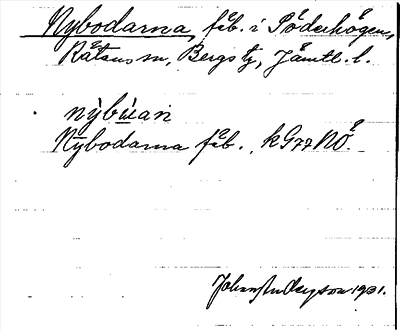 Nybodarna, fäb. i Söderhögen,
Rätans sn, Bergs tg, Jämtl. l.
nỳbu̇an
Nybodarna fäb. kG77NÖ.
John Anderson 1931.